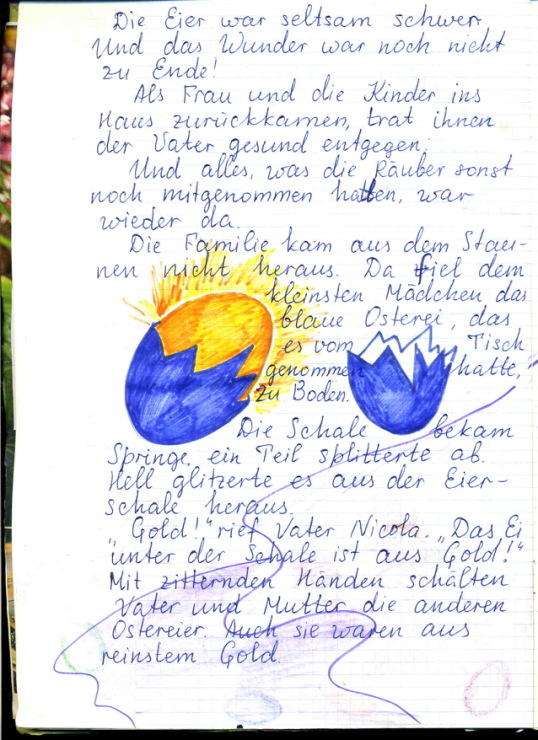 Die Eier war seltsam schwer.
Und das Wunder war noch nicht
zu Ende!
Als Frau und die Kinder ins
Haus zurückkamen, trat ihnen
der Vater gesund entgegen.
Und alles, was die Räuber sonst
noch mitgenommen hatten, war
wieder da.
Die Familie kam aus dem Stau-
nen nicht heraus. Da fiel dem
kleinsten Mädchen das
blaue Osterei, das
es vom Tisch
genommen hatte,
zu Boden.
Die Schale bekam
Springe, ein Teil splitterte ab.
Hell glitzerte es aus der Eier-
schale heraus.
„Gold!" rief Vater Nicola. „Das Ei
unter der Schale ist aus Gold!"
Mit zitternden Händen schälten
Vater und Mutter die anderen
Ostereier. Auch sie waren aus
reinstem Gold.